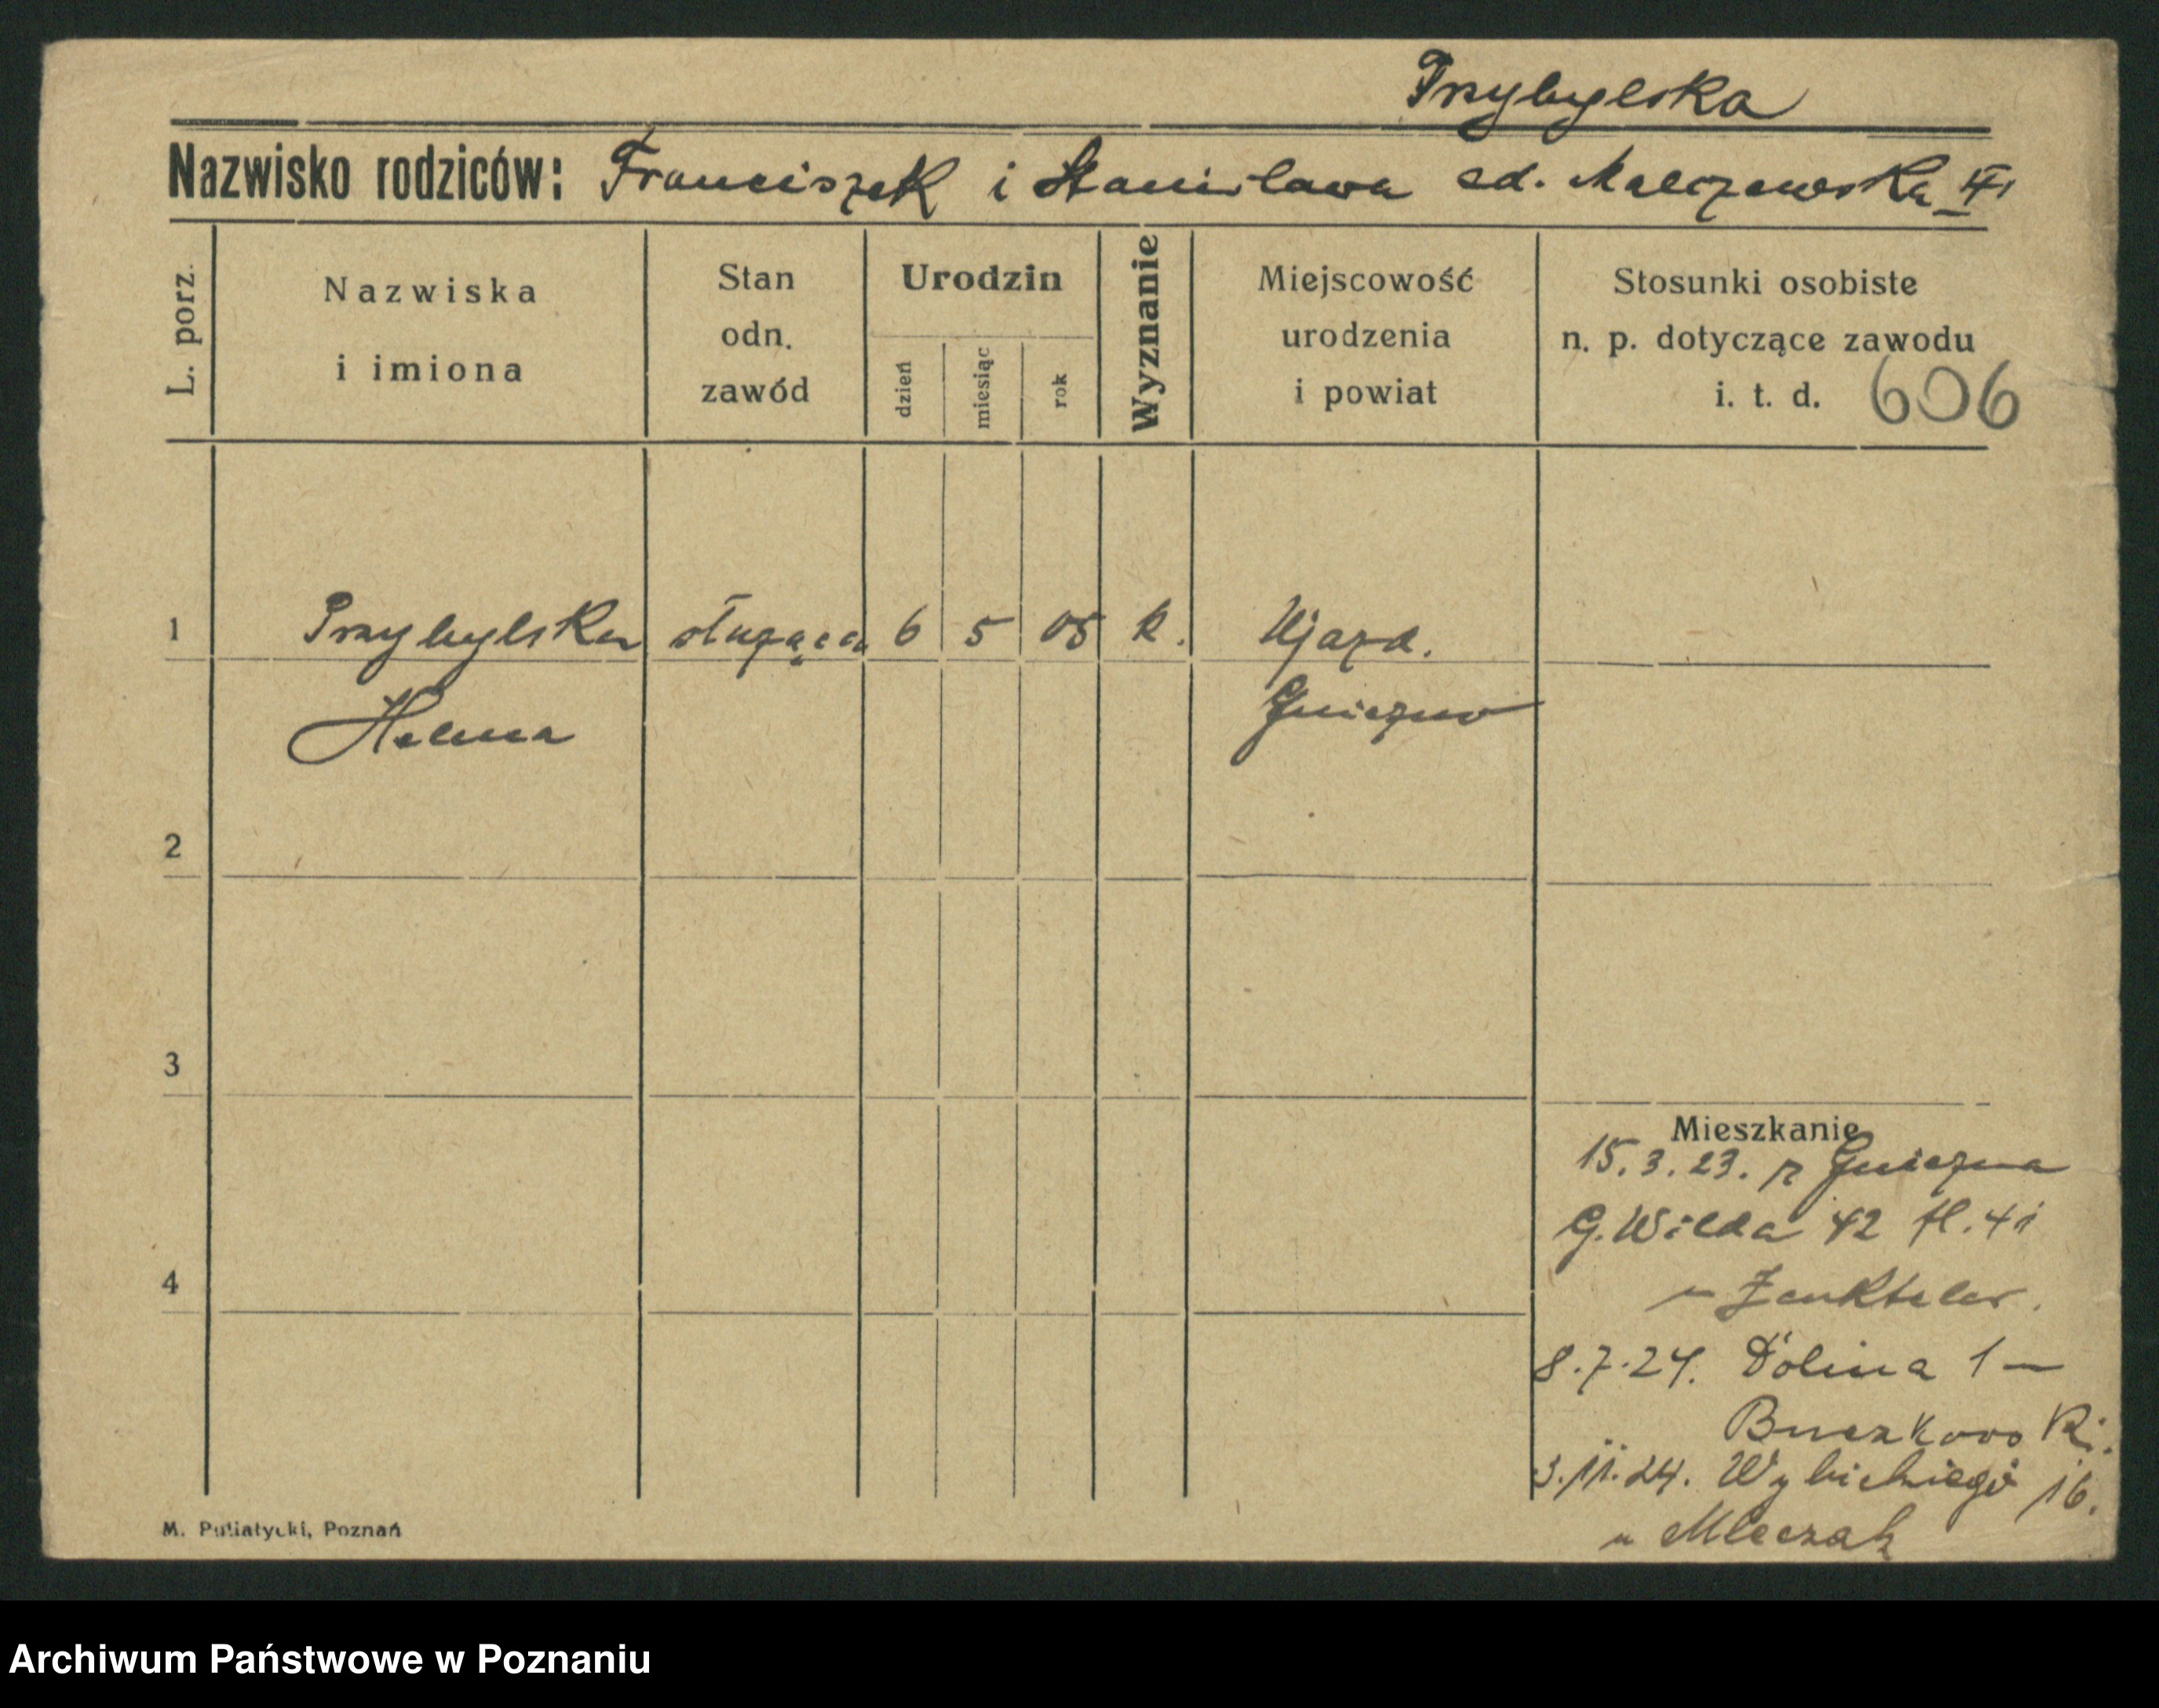 Przybylska
Nazwisko rodziców: Franciszek i Stanisława zd. Malczewska
L. porz.
Nazwiska
i imiona
Stan
odn.
zawód
Urodzin
dzień
miesiąc
rok
Wyznanie
Miejscowość
urodzenia
i powiat
Stosunki osobiste
n. p. dotyczące zawodu
i. t. d. 606
1 Przybylska służąca 6 5 05 k. Ujazd.
Helena Gniezno
2
3
4
Mieszkanie
15.3.23. z Gniezna
G. Wilda 42 41
u Zenkteler.
8.7.24. Dolina 1 —
Buczkowski.
3.11.24. Wybickiego 16.
u Mleczak
M. Putiatycki, Poznań
Archiwum Państwowe w Poznaniu